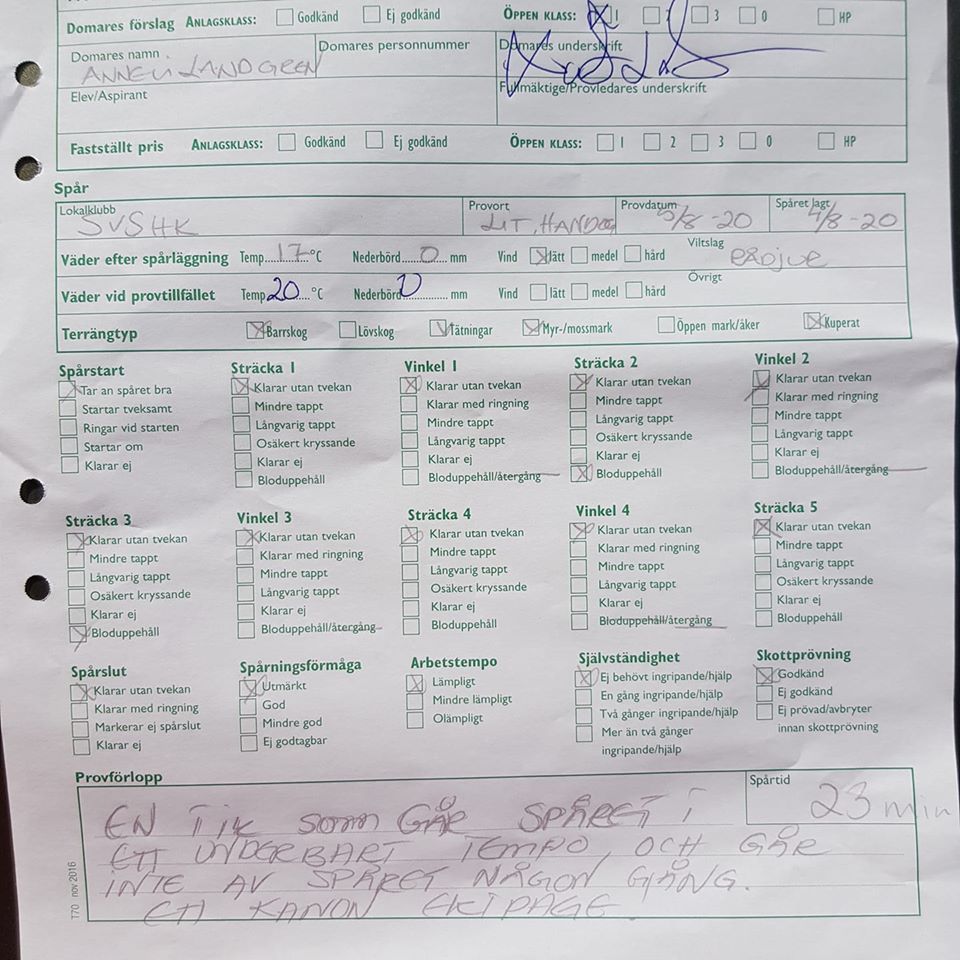 Domares förslag ANLAGSKLASS: Godkänd Ej godkänd ÖPPEN KLASS: 1 2 3 0 HP
Domares namn Domares personnummer Domares underskrift
ANNELI LANDGREN
Elev/Aspirant Fullmäktige/Provledares underskrift
Fastställt pris ANLAGSKLASS: Godkänd Ej godkänd ÖPPEN KLASS: 1 2 3 0 HP
Spår
Lokalklubb Provort Provdatum Spåret lagt
SVSHK LIT, HANDOG 5/8 -20 4/8 -20
Väder efter spårläggning Temp 17 °C Nederbörd 0 mm Vind lätt medel hård Viltslag
Rådjur
Väder vid provtillfället Temp 20 °C Nederbörd 0 mm Vind lätt medel hård Övrigt
Terrängtyp Barrskog Lövskog Tätningar Myr-/mossmark Öppen mark/åker Kuperat
Spårstart
Tar an spåret bra
Startar tveksamt
Ringar vid starten
Startar om
Klarar ej
Sträcka 1
Klarar utan tvekan
Mindre tappt
Långvarig tappt
Osäkert kryssande
Klarar ej
Bloduppehåll
Vinkel 1
Klarar utan tvekan
Klarar med ringning
Mindre tappt
Långvarig tappt
Klarar ej
Bloduppehåll/återgång
Sträcka 2
Klarar utan tvekan
Mindre tappt
Långvarig tappt
Osäkert kryssande
Klarar ej
Bloduppehåll
Vinkel 2
Klarar utan tvekan
Klarar med ringning
Mindre tappt
Långvarig tappt
Klarar ej
Bloduppehåll/återgång
Sträcka 3
Klarar utan tvekan
Mindre tappt
Långvarig tappt
Osäkert kryssande
Klarar ej
Bloduppehåll
Vinkel 3
Klarar utan tvekan
Klarar med ringning
Mindre tappt
Långvarig tappt
Klarar ej
Bloduppehåll/återgång
Sträcka 4
Klarar utan tvekan
Mindre tappt
Långvarig tappt
Osäkert kryssande
Klarar ej
Bloduppehåll
Vinkel 4
Klarar utan tvekan
Klarar med ringning
Mindre tappt
Långvarig tappt
Klarar ej
Bloduppehåll/återgång
Sträcka 5
Klarar utan tvekan
Mindre tappt
Långvarig tappt
Osäkert kryssande
Klarar ej
Bloduppehåll
Spårslut
Klarar utan tvekan
Klarar med ringning
Markerar ej spårslut
Klarar ej
Spårningsförmåga
Utmärkt
God
Mindre god
Ej godtagbar
Arbetstempo
Lämpligt
Mindre lämpligt
Olämpligt
Självständighet
Ej behövt ingripande/hjälp
En gång ingripande/hjälp
Två gånger ingripande/hjälp
Mer än två gånger
ingripande/hjälp
Skottprövning
Godkänd
Ej godkänd
Ej prövad/avbryter
innan skottprövning
Provförlopp Spårtid
23 min
EN TIK SOM GÅR SPÅRET I
ETT UNDERBART TEMPO, OCH GÅR
INTE AV SPÅRET NÅGON GÅNG.
ETT KANON EKIPAGE.
T70 nov 2016